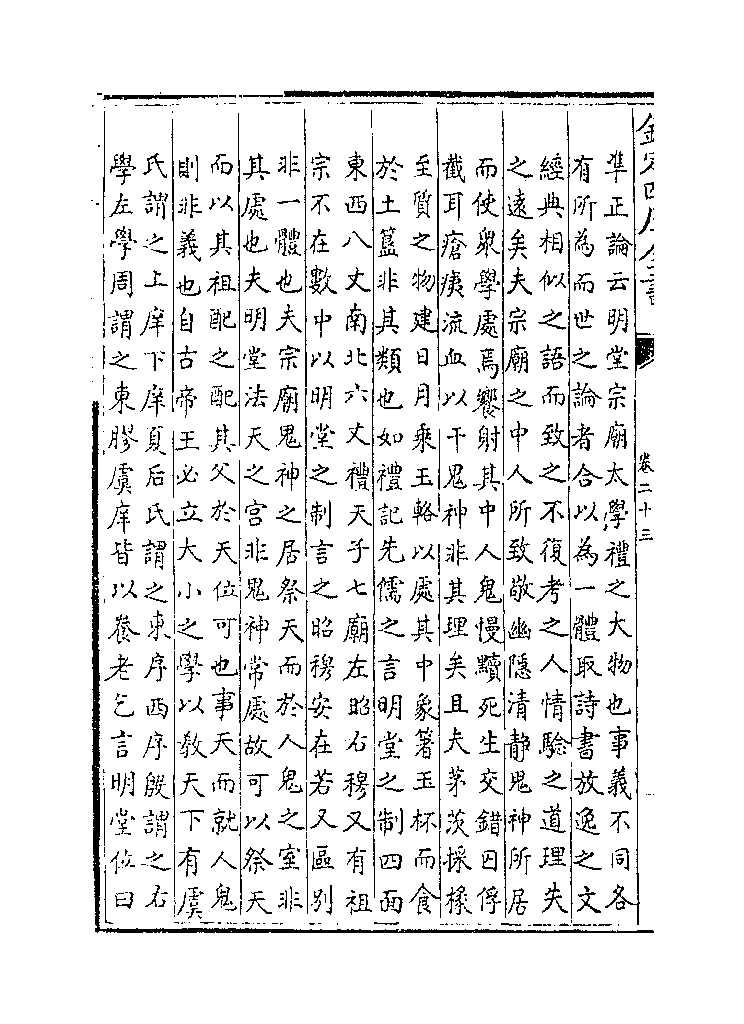 欽定四庫全書
卷二十三
準正論云明堂宗廟太學禮之大物也事義不同各
有所為而世之論者合以為一體取詩書放逸之文
經典相似之語而致之不復考之人情驗之道理失
之遠矣夫宗廟之中人所致敬幽隱清静鬼神所居
而使衆學處焉饗射其中人鬼慢黷死生交錯囚俘
截耳瘡痍流血以干鬼神非其理矣且夫茅茨採椽
至質之物建日月乘玉輅以處其中象箸玉杯而食
於土簋非其類也如禮記先儒之言明堂之制四面
東西八丈南北六丈禮天子七廟左昭右穆又有祖
宗不在數中以明堂之制言之昭穆安在若又區别
非一體也夫宗廟鬼神之居祭天而於人鬼之室非
其處也夫明堂法天之宫非鬼神常處故可以祭天
而以其祖配之配其父於天位可也事天而就人鬼
則非義也自古帝王必立大小之學以教天下有虞
氏謂之上庠下庠夏后氏謂之東序西序殷謂之右
學左學周謂之東膠虞庠皆以養老乞言明堂位曰